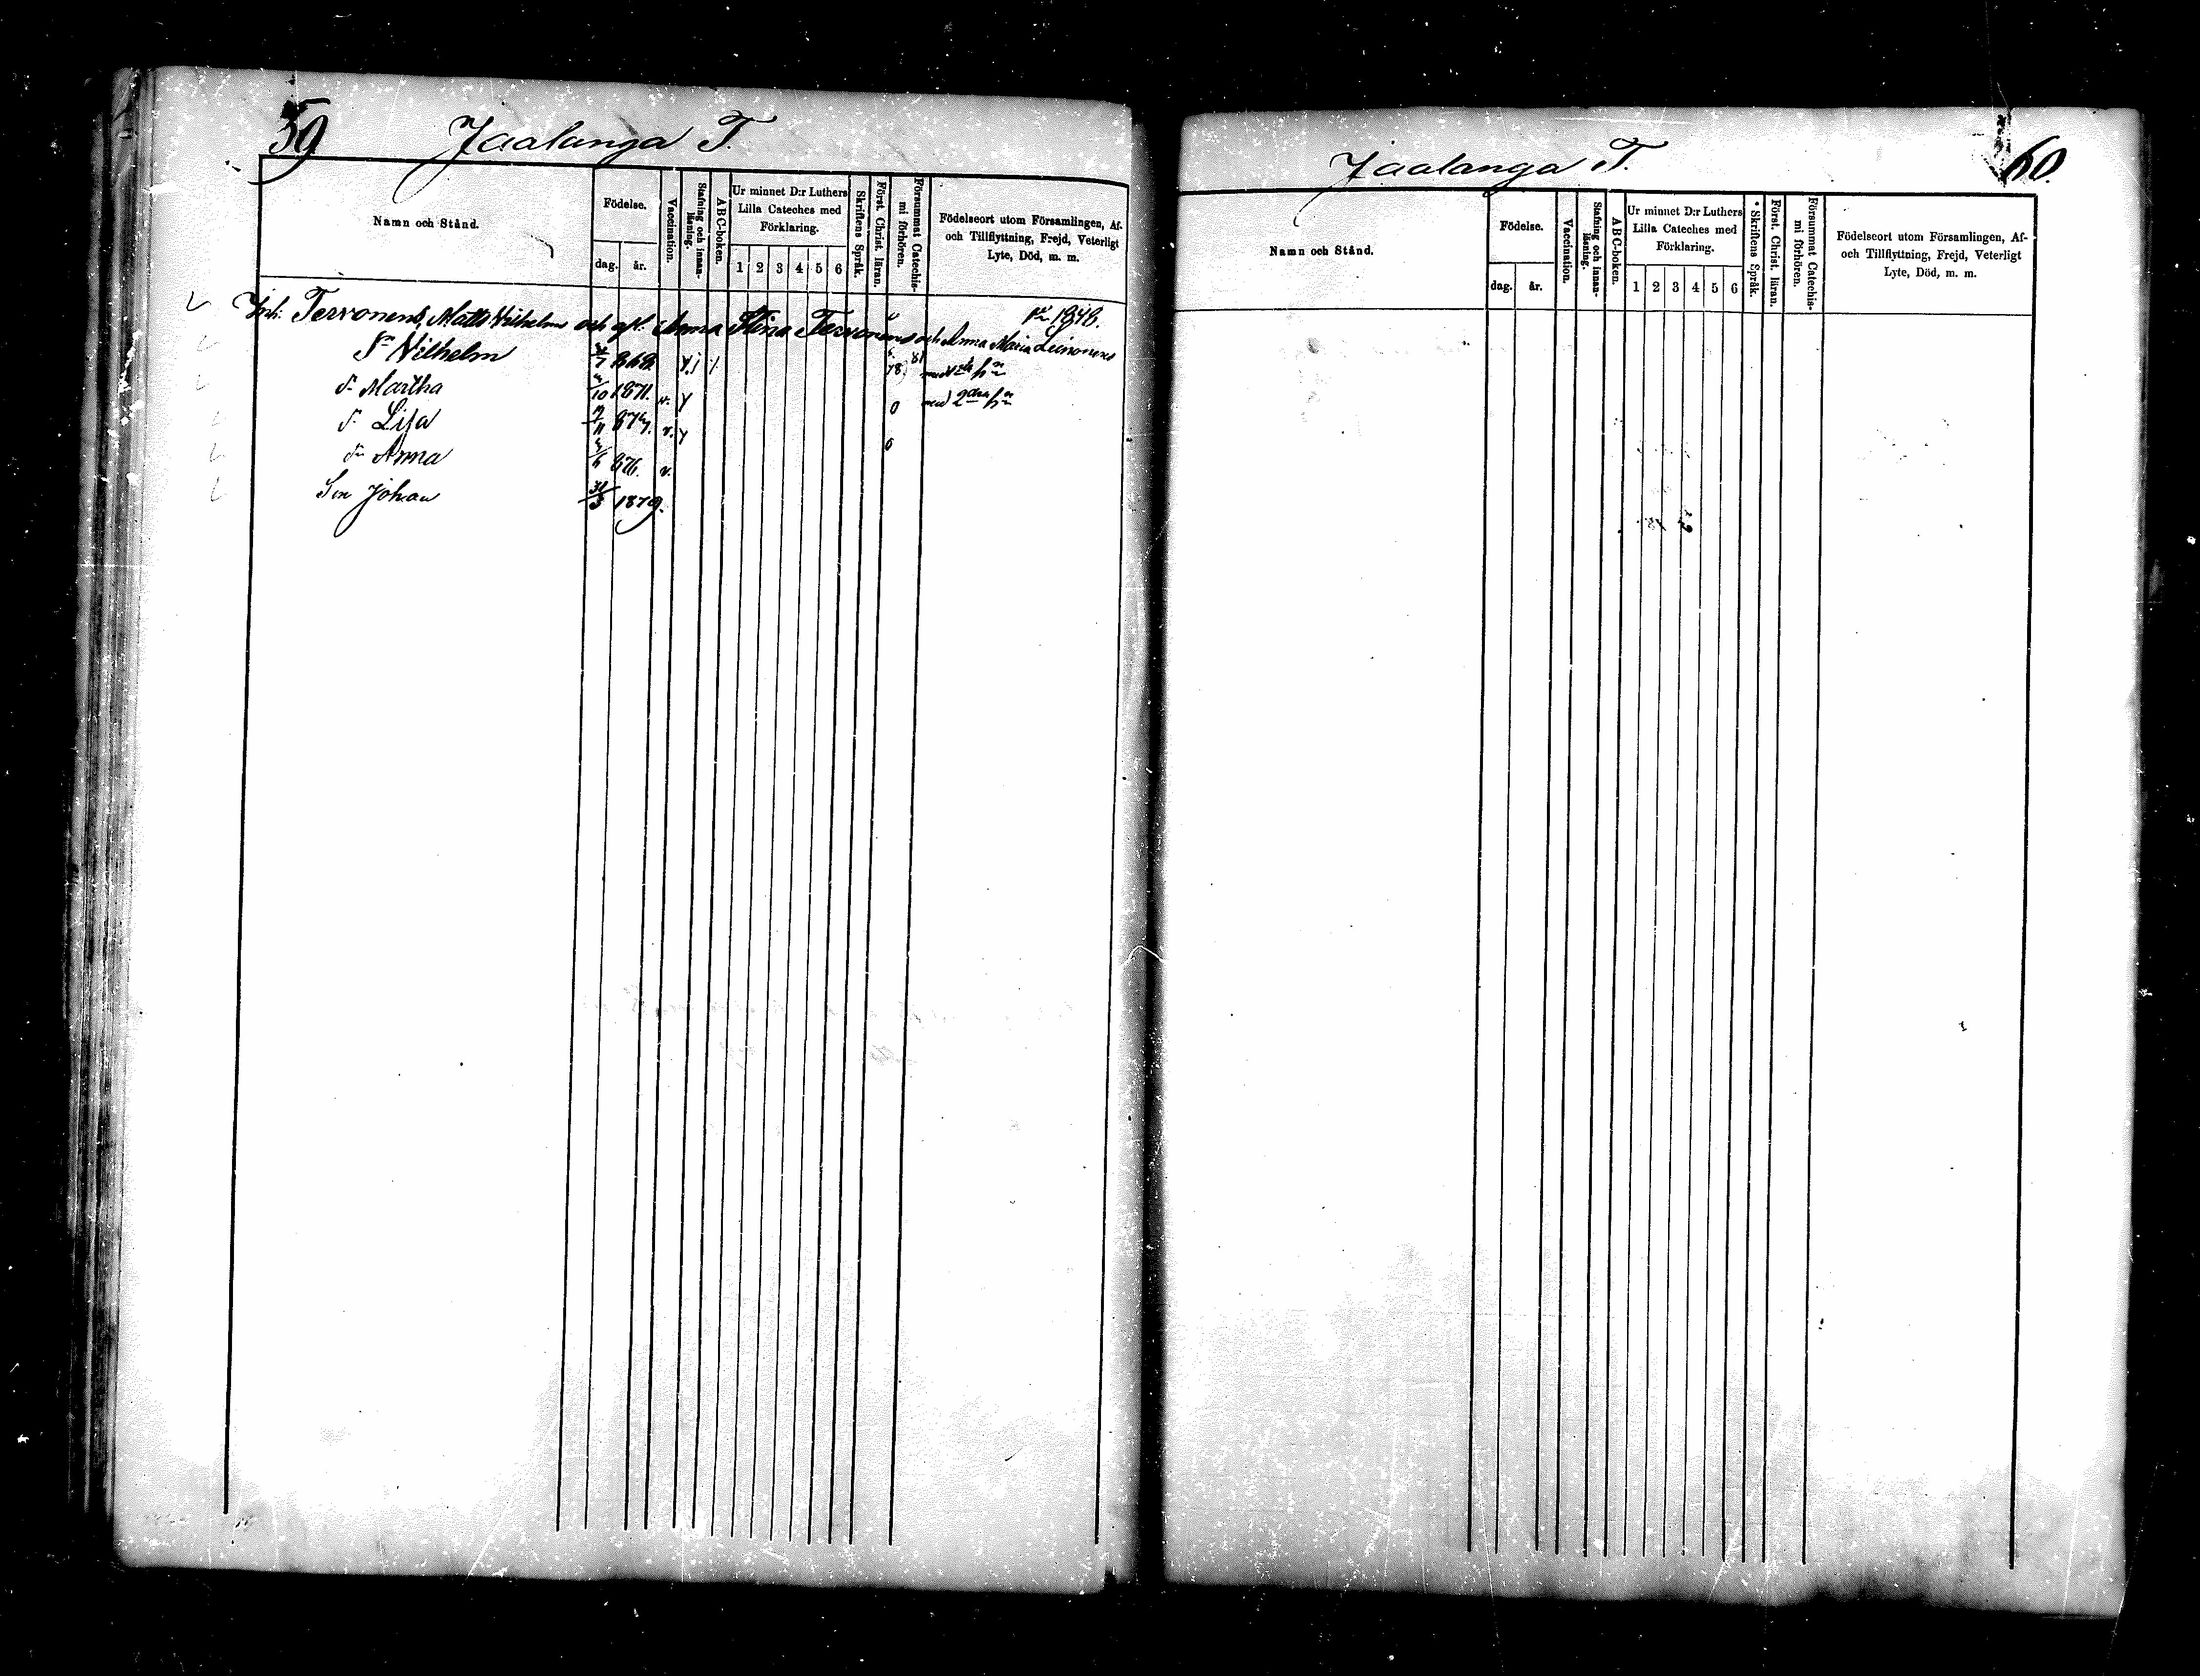 59 Jaalanga T.
Namn och Stånd.
Födelse.
dag. år.
Vaccination.
Stafning och innan-
läsning.
ABC-boken.
Ur minnet D:r Luthers
Lilla Cateches med
Förklaring.
1 2 3 4 5 6
Skriftens Språk.
Först. Christ. läran.
Försummat Catechis-
mi förhören.
Födelseort utom Församlingen, Af-
och Tillflyttning, Frejd, Veterligt
Lyte, Död, m. m.
Inh: Tervonens, Matts Vilhelm och afl. Anna Stina Tervonens och Anna Maria Leinonens
1848.
Vilhelm 1868. 78, 81 med
Martha 10 1871. v. 0 med 2dra
Lisa 19/11 1874. v. 0
Anna 1876. v.
Son Johan 31/3 1879.
Jaalanga T. 60.
Namn och Stånd.
Födelse.
dag. år.
Vaccination.
Stafning och innan-
läsning.
ABC-boken.
Ur minnet D:r Luthers
Lilla Cateches med
Förklaring.
1 2 3 4 5 6
Skriftens Språk.
Först. Christ. läran.
Försummat Catechis-
mi förhören.
Födelseort utom Församlingen, Af-
och Tillflyttning, Frejd, Veterligt
Lyte, Död, m. m.